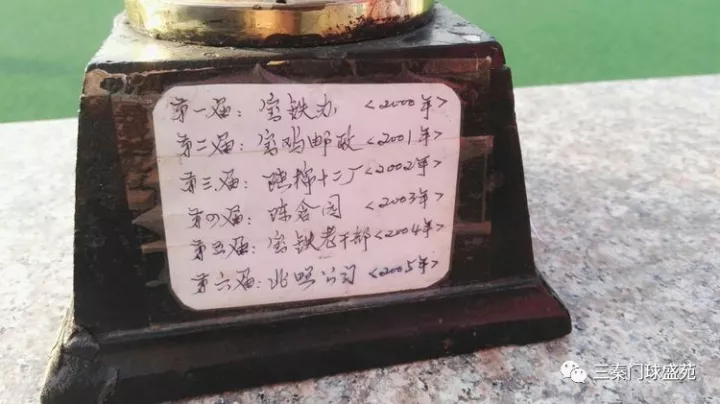 第一届：宝铁办 <2000年>
第二届：宝鸡邮政 <2001年>
第三届：陕棉十二厂 <2002年>
第四届：陈仓园 <2003年>
第五届：宝铁老干部 <2004年>
第六届：北照公司 <2005年>
三秦门球盛苑